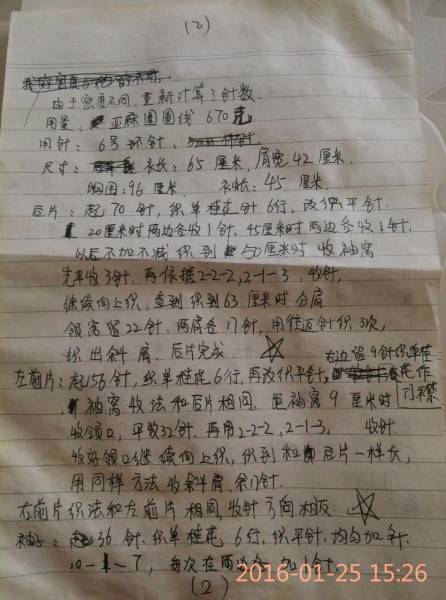 (2)
由于密度不同,重新计算了针数.
用量: 亚麻圈圈线 670克
用针: 6号环针.
尺寸: 衣长: 65厘米, 肩宽 42厘米.
胸围: 96厘米. 衣袖长: 45厘米.
后片: 起70针, 织单桂花针6行, 改织平针.
20厘米时两边各收1针, 45厘米时两边各收1针,
以后不加不减织到50厘米时收袖窝
先平收3针, 再依据2-2-2, 2-1-3 收针,
继续向上织, 直到织到63厘米时分肩
领窝留22针, 两肩各17针, 用往返针织3次,
织出斜肩. 后片完成
右边留9针织单桂
左前片: 起56针, 织单桂花6行, 再改织平针, 花作
门襟
袖窝收法和后片相同, 距袖窝9厘米时
收领口, 平收32针, 再用2-2-2, 2-1-3, 收针
收好领口继续向上织, 织到和后片一样长,
用同样方法收斜肩, 余17针.
右前片织法和左前片相同, 收针方向相反.
袖子: 起36针, 织单桂花6行, 织平针, 均匀加针,
10-1-7, 每次在两边各加1针
(2)
2016-01-25 15:26